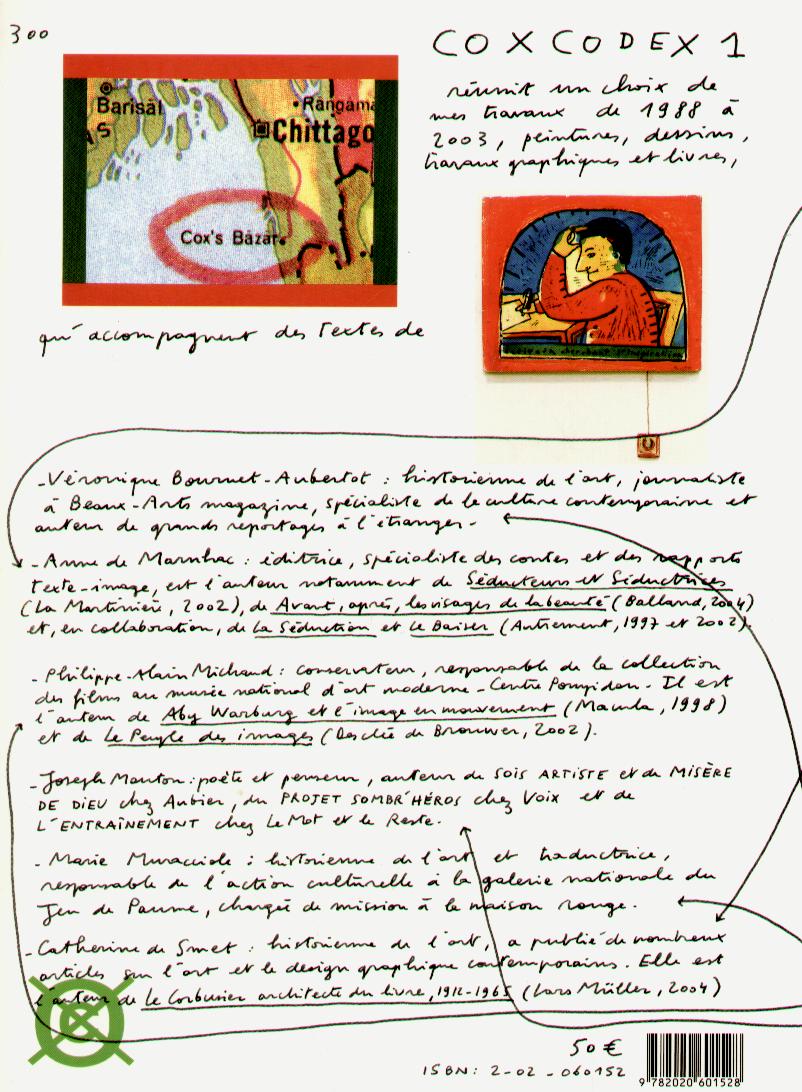 300
COXCODEX 1
réunit un choix de
mes travaux de 1988 à
2003, peintures, dessins,
travaux graphiques et livres,
Barisāl
Rāngāma
Chittago
Cox's Bāzār
qui accompagnent des textes de
- Véronique Bouruet-Aubertot : historienne de l'art, journaliste
à Beaux-Arts magazine, spécialiste de la culture contemporaine et
auteur de grands reportages à l'étranger.
- Anne de Marnhac : éditrice, spécialiste des contes et des rapports
texte-image, est l'auteur notamment de Séducteurs et Séductrices
(La Martinière, 2002), de Avant, après, les visages de la beauté (Balland, 2004)
et, en collaboration, de La Séduction et Le Baiser (Autrement, 1997 et 2002).
- Philippe-Alain Michaud : conservateur, responsable de la collection
des films au musée national d'art moderne - Centre Pompidou. Il est
l'auteur de Aby Warburg et l'image en mouvement (Macula, 1998)
et de Le Peuple des images (Desclée de Brouwer, 2002).
- Joseph Mouton : poète et penseur, auteur de SOIS ARTISTE et de MISÈRE
DE DIEU chez Aubier, du PROJET SOMBR'HÉROS chez Voix et de
L'ENTRAÎNEMENT chez Le Mot et le Reste.
- Marie Muracciole : historienne de l'art et traductrice,
responsable de l'action culturelle à la galerie nationale du
Jeu de Paume, chargée de mission à la maison rouge.
- Catherine de Smet : historienne de l'art, a publié de nombreux
articles sur l'art et le design graphique contemporains. Elle est
l'auteur de Le Corbusier architecte du livre, 1912-1965 (Lars Müller, 2004)
50 €
ISBN : 2-02-060152
9 782020 601528